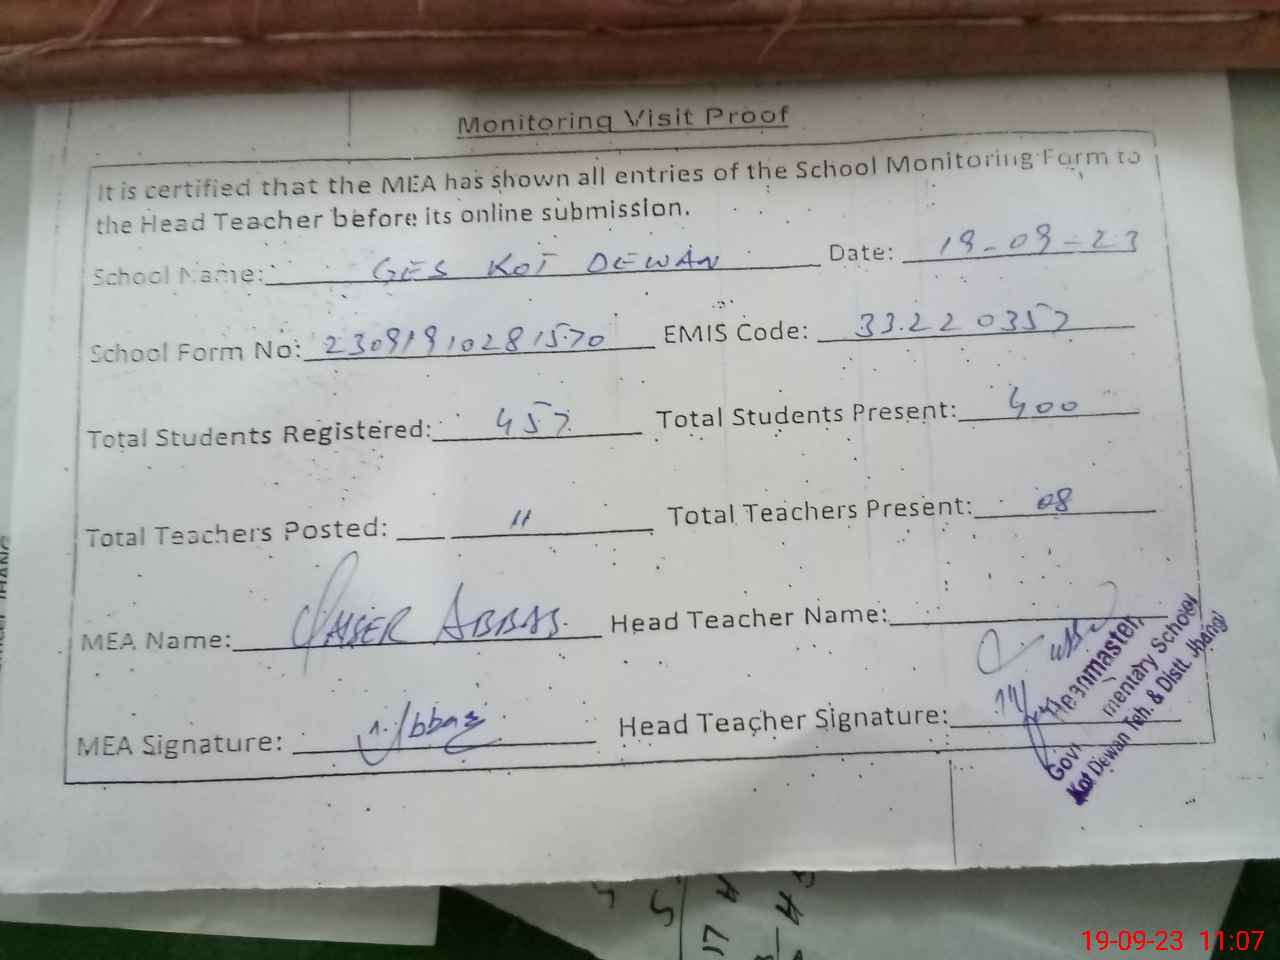 Monitoring Visit Proof
It is certified that the MEA has shown all entries of the School Monitoring Form to
the Head Teacher before its online submission.
School Name: GES KOT DEWAN Date: 19-09-23
School Form No: 23091910281570 EMIS Code: 33220357
Total Students Registered: 457 Total Students Present: 400
Total Teachers Posted: 11 Total Teachers Present: 08
MEA Name: QAISER ABBAS. Head Teacher Name:
MEA Signature: Head Teacher Signature:
Headmaster
Govt mentary School
Kot Dewan Teh. & Distt. Jhang
19-09-23 11:07